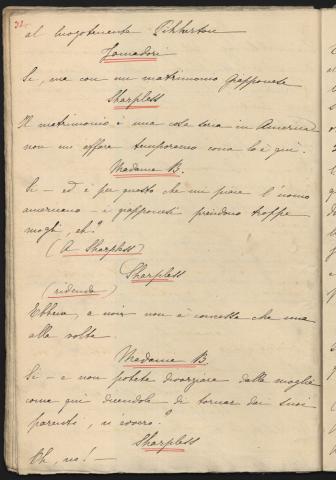 32
al luogotenente Pikkerton
Yamadori
Si, ma con un matrimonio giapponese
Sharpless
Il matrimonio è una cosa seria in America
non un affare temporaneo come lo è qui.
Madame B.
Si - ed è per questo che mi piace l'uomo
americano - i giapponesi prendono troppe
mogli, eh?
(A Sharpless)
Sharpless
(ridendo)
Ebbene, a noi non è concessa che una
alla volta.
Madame B.
Si - e non potete divorziare dalla moglie
come qui dicendole di tornar dai suoi
parenti, è vero?
Sharpless
Oh, no! -